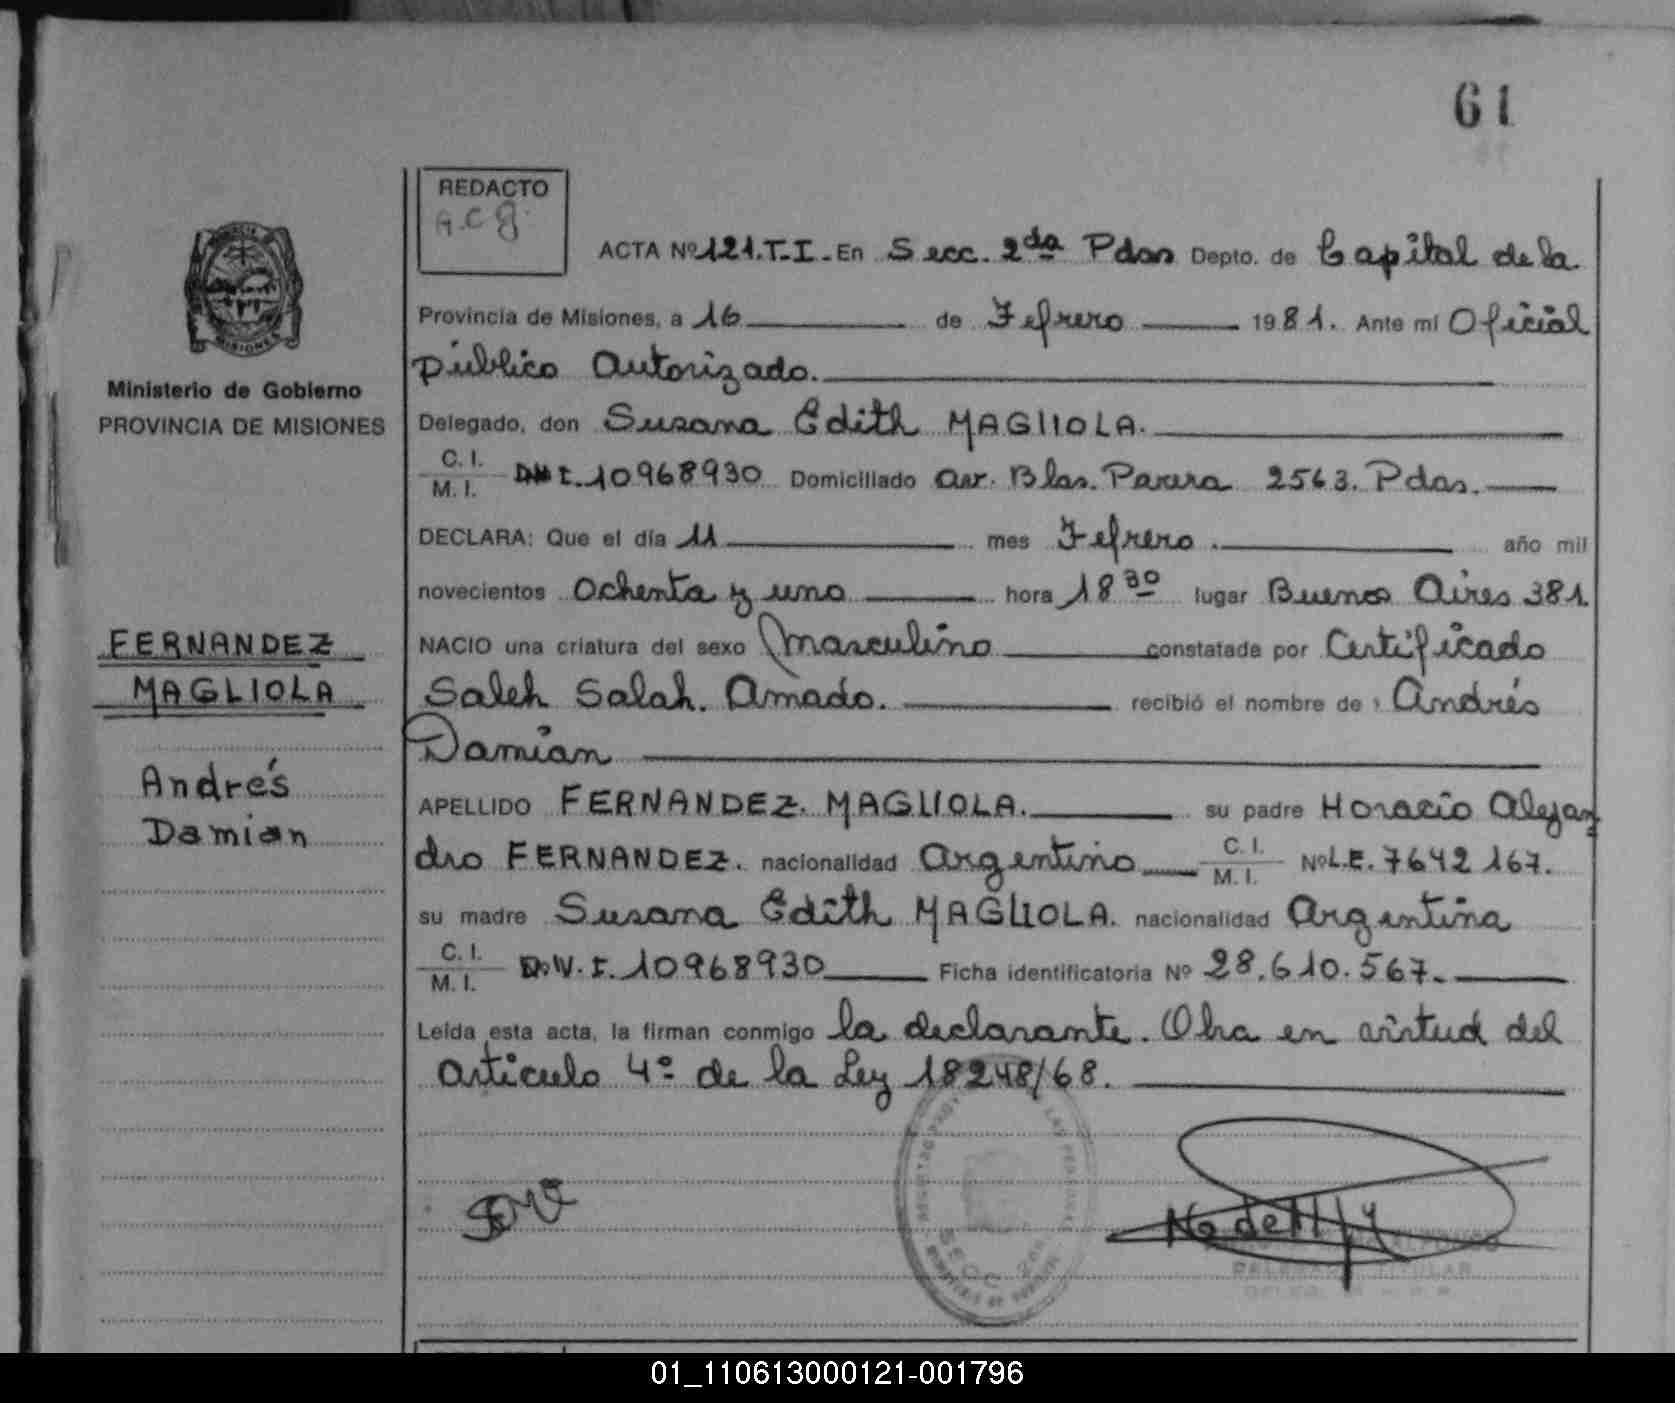 61
REDACTO
A.C.G.
ACTA Nº 121.T.I. En Secc. 2da Pdas Depto. de Capital de la
Provincia de Misiones, a 16 de Febrero 1981. Ante mi Oficial
Público Autorizado.
Delegado, don Susana Edith MAGLIOLA.
C. I.
M. I. DNI. 10968930 Domiciliado Av. Blas. Parera 2563. Pdas.
DECLARA: Que el día 11 mes Febrero. año mil
novecientos Ochenta y uno hora 18 30 lugar Buenos Aires 381.
NACIO una criatura del sexo Masculino constatada por Certificado
Saleh Salah. Amado. recibió el nombre de: Andrés
Damian
APELLIDO FERNANDEZ. MAGLIOLA. su padre Horacio Alejan
dro FERNANDEZ. nacionalidad Argentino C. I.
M. I. Nº L.E. 7642167.
su madre Susana Edith MAGLIOLA. nacionalidad Argentina
C. I.
M. I. D.N.I. 10968930 Ficha identificatoria Nº 28.610.567.
Leída esta acta, la firman conmigo la declarante. Obra en virtud del
artículo 4º de la Ley 18248/68.
MISIONES
Ministerio de Gobierno
PROVINCIA DE MISIONES
FERNANDEZ
MAGLIOLA
Andrés
Damian
SECC 2da
DELEGADO TITULAR
01_110613000121-001796